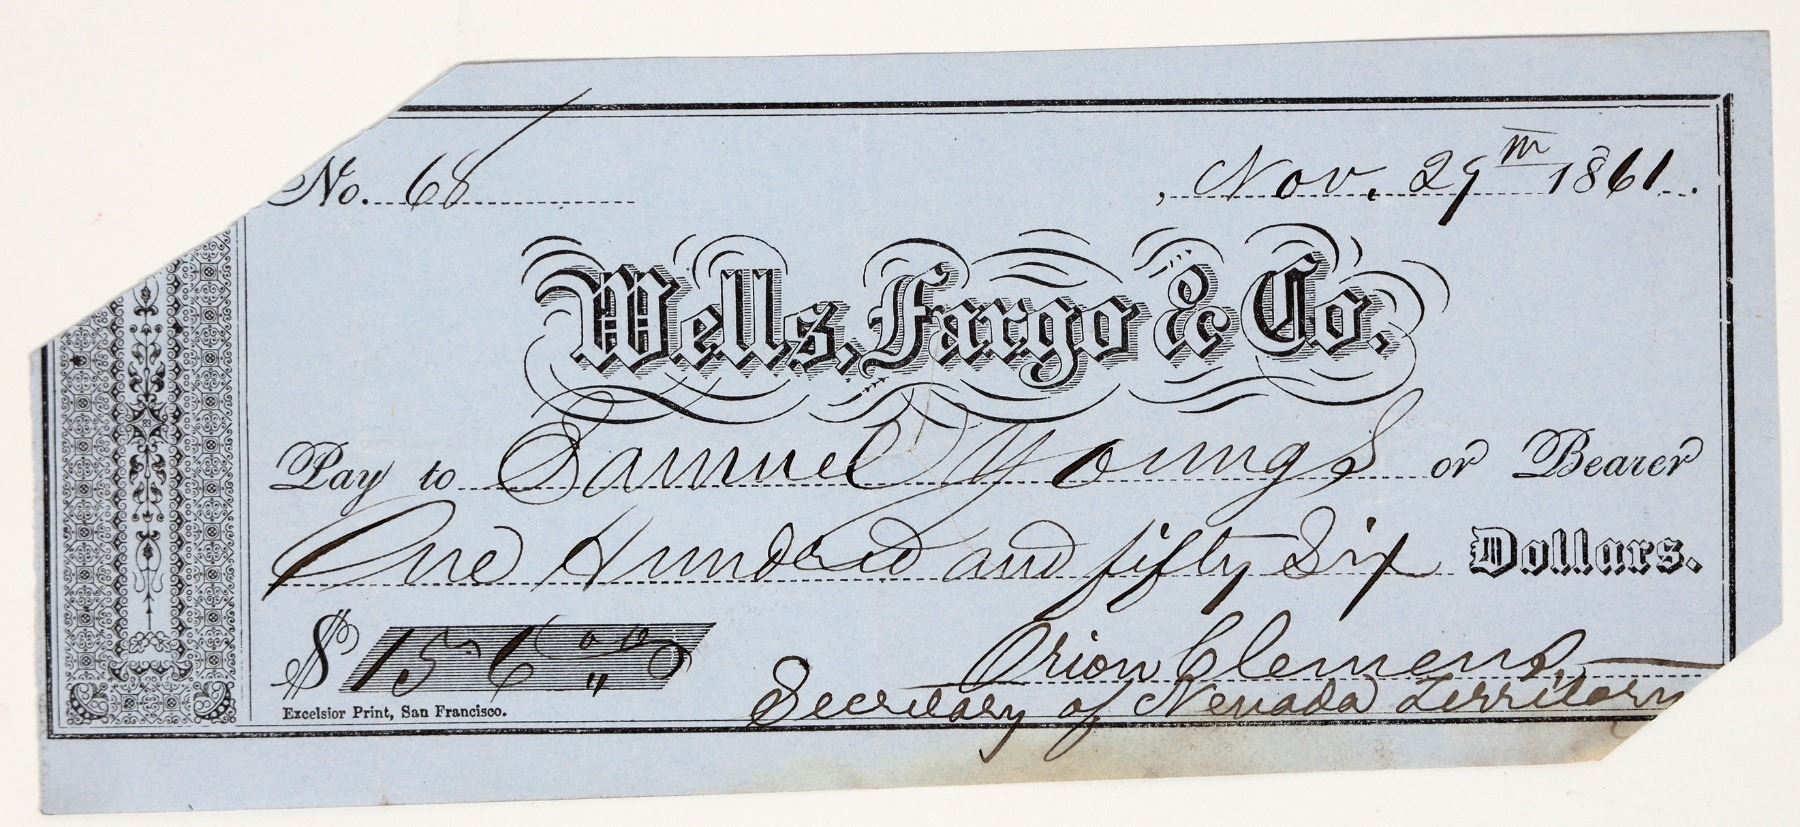 No. 68
, Nov. 29th 1861.
Wells, Fargo & Co.
Pay to Samuel Youngs or Bearer
One Hundred and fifty Six Dollars.
$ 156 00
Orion Clemens,
Excelsior Print, San Francisco.
Secretary of Nevada Territory